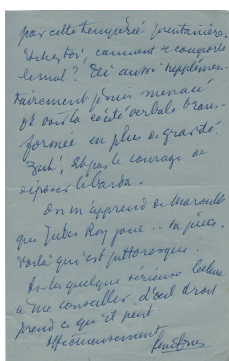 par cette température printanière.
Et chez toi, comment se comporte
le mal? Ici aussi supplémen-
tairement je suis menacé
de voir la cécité verbale trans-
formée en plus de gravité.
Zut! Et pas le courage de
déposer le barda.
On m'apprend de Marseille
que Jules Roy joue .. sa pièce.
Voilà qui est pittoresque.
As-tu quelque sérieuse lecture
à me conseiller. L'oeil droit
prend ce qu'il peut
Affectueusement